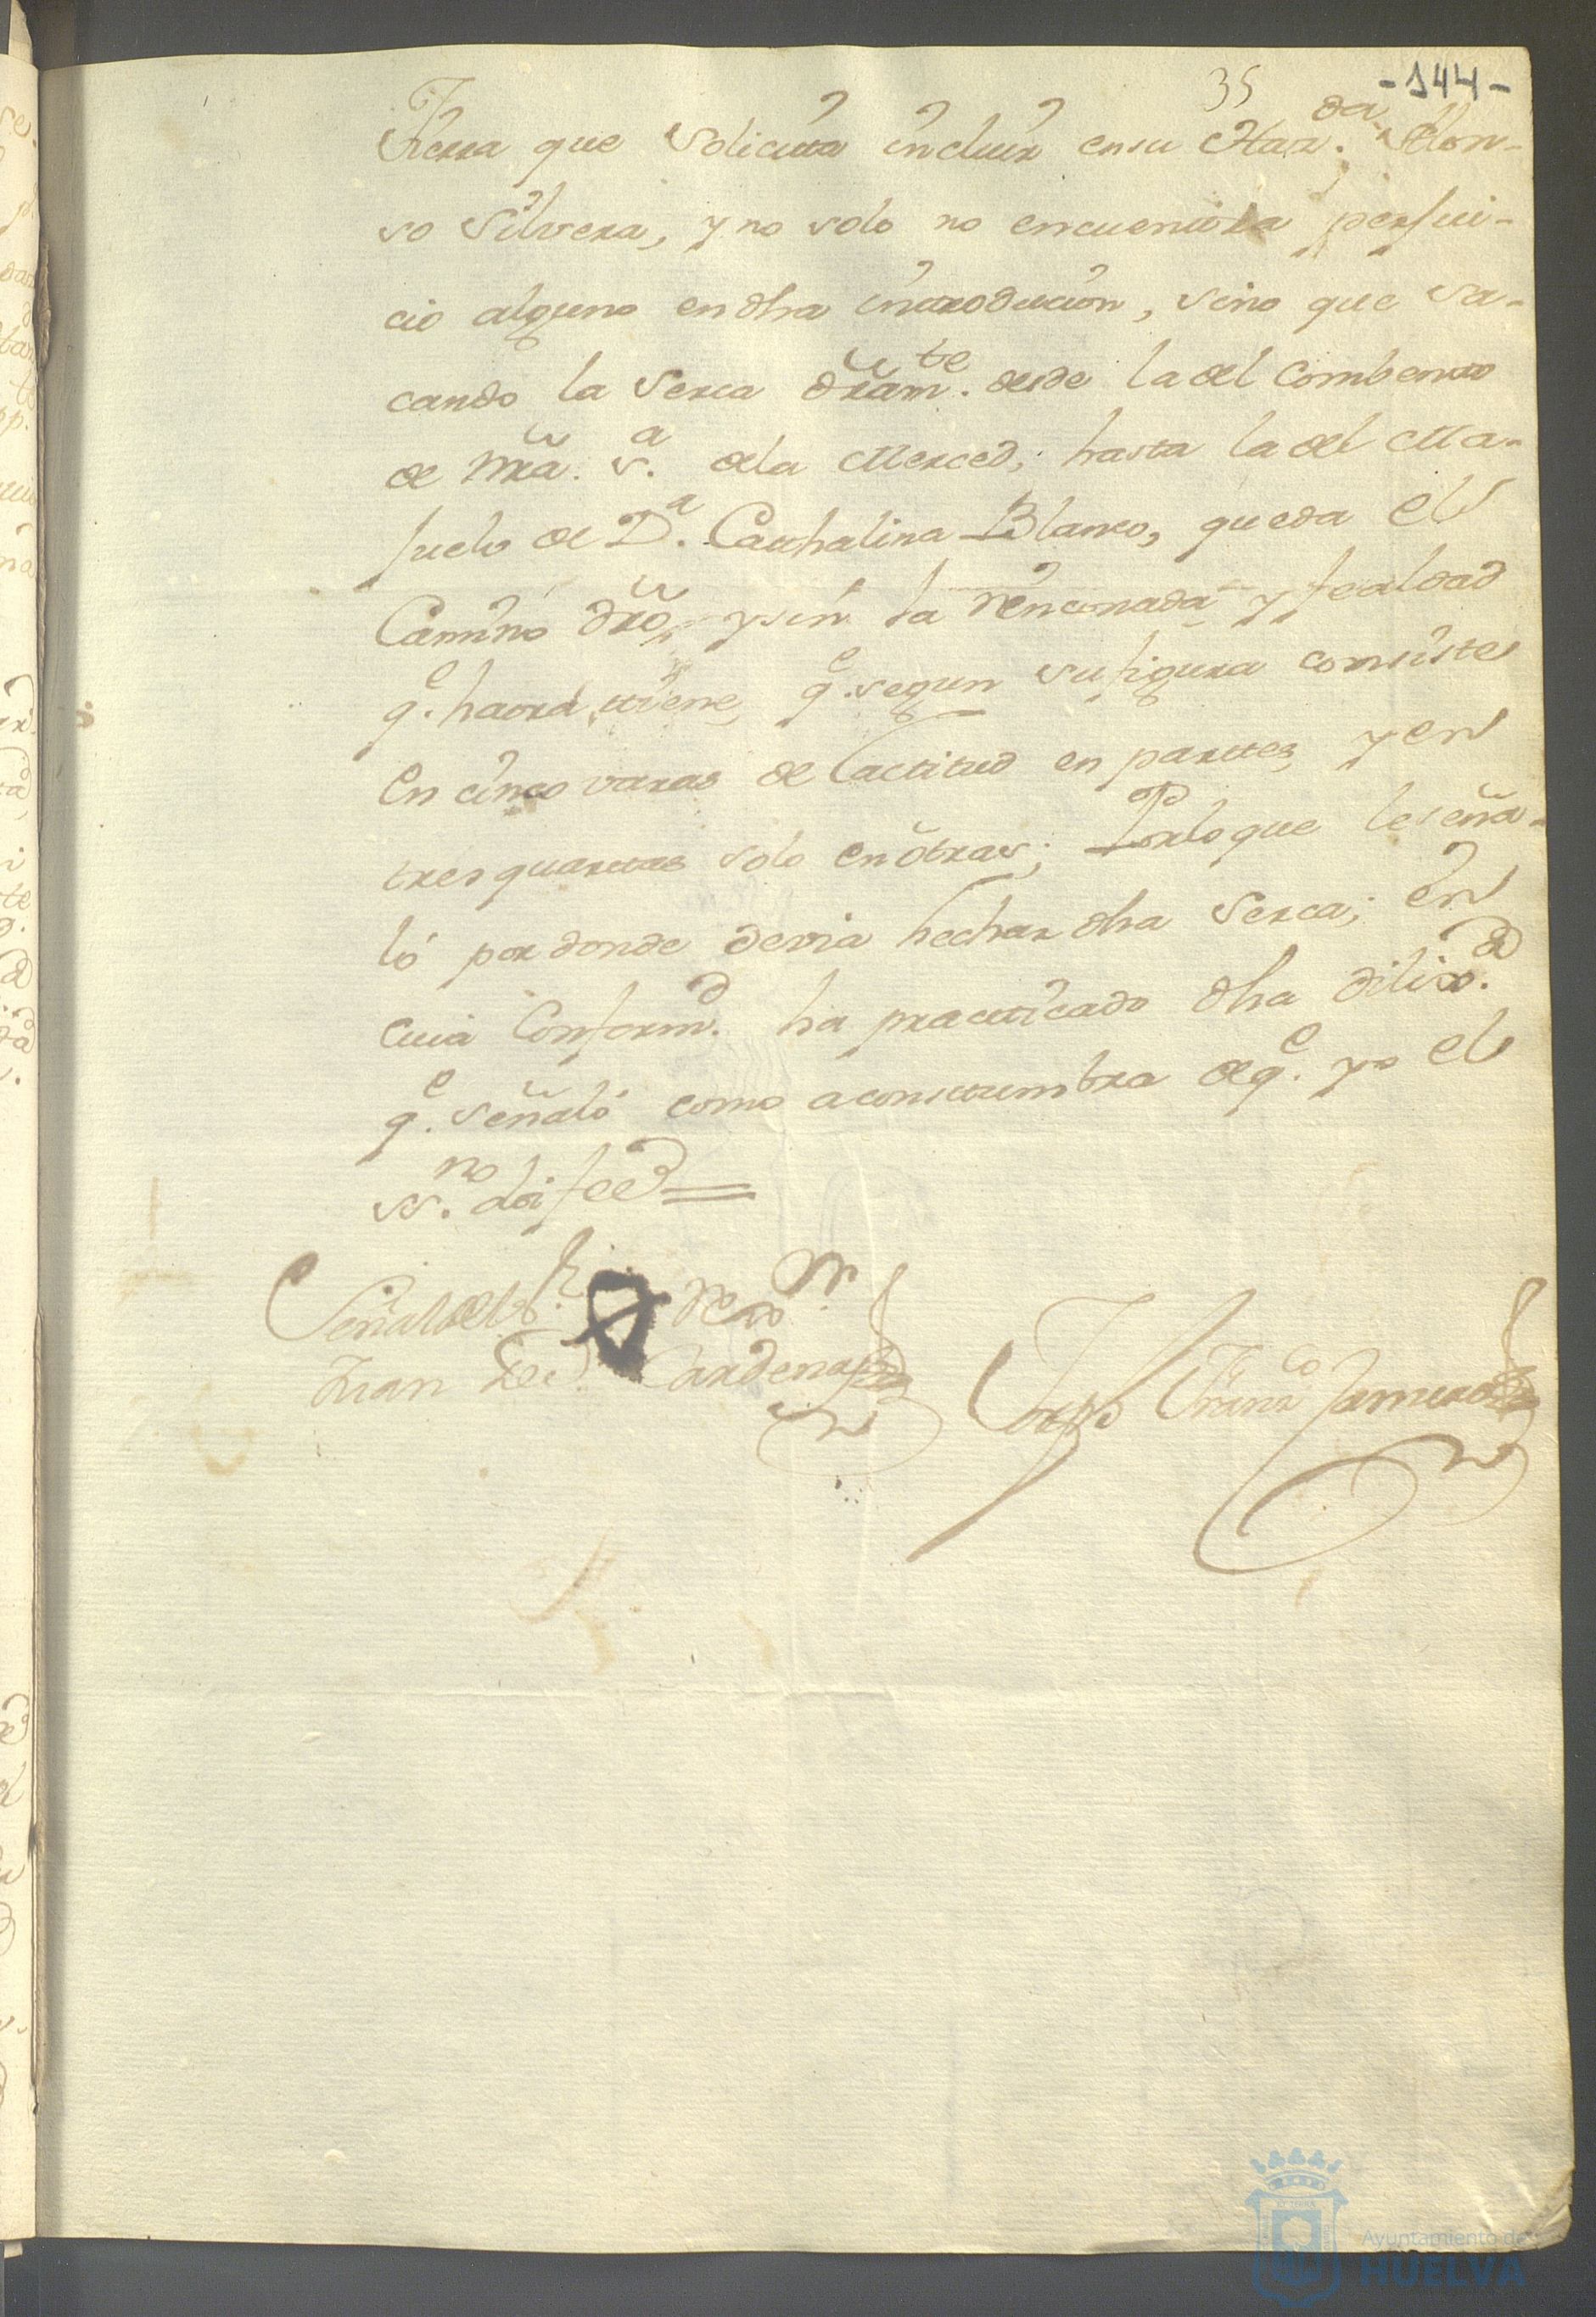 35 -144-
Tierra que solicita incluir en su Haz.da Alon-
so Silvera, y no solo no encuentra perjui-
cio alguno en dha introducion, sino que sa-
cando la serca dram.te desde la del combento
de Nra. S.a de la Merced; hasta la del Ma-
juelo de D.a Cathalina Blanco, queda el
Camino dro, y sin la rinconada y fealdad
q.e haora tiene, q.e segun su figura consiste
en cinco varas de lactitud en partes, y en
tres quartas solo en otras; Por lo que le seña-
ló por donde devia hechar dha serca; en
cuia Conform.d ha practicado dha dilix.a
q.e señaló como acostumbra de q.e yo el
ss.no doi fee=
Señal del
Juan Cardenas
Franz.co
Ayuntamiento de
HUELVA